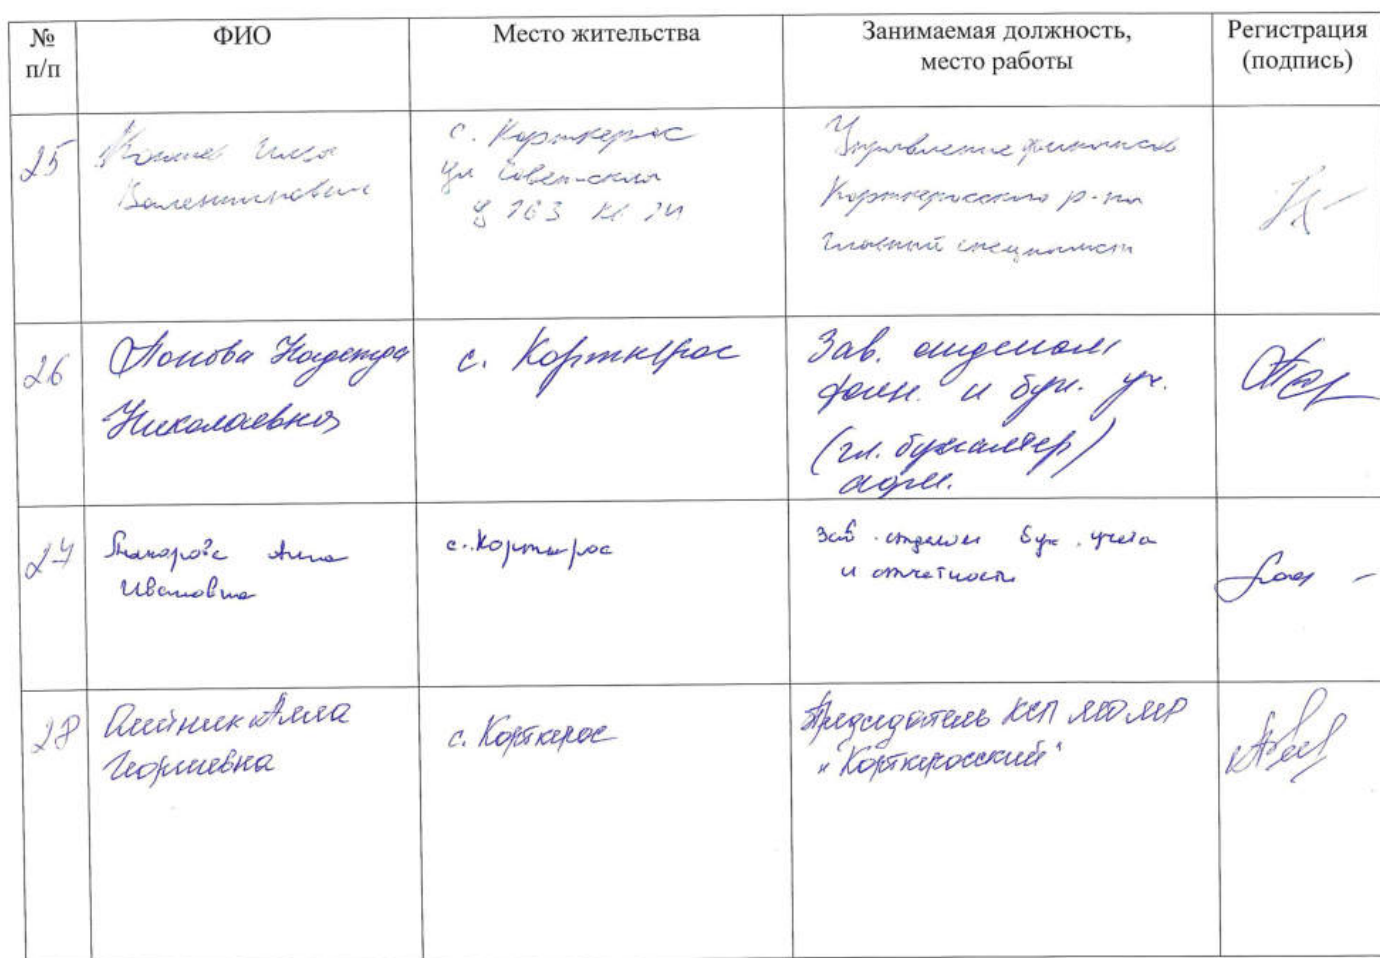 № п/п
ФИО
Место жительства
Занимаемая должность, место работы
Регистрация (подпись)
25
Илья
Валентинович
с. Корткерос
ул Советская
Управление финансов
Корткеросского р-на
главный специалист
26
Попова Надежда
Николаевна
с. Корткерос
Зав. отделом
фин. и бух. уч.
(гл. бухгалтер)
адм.
27
Анна
Ивановна
с. Корткерос
Зав. отделом бух. учета
и отчетности
28
Олейник Алла
Георгиевна
с. Корткерос
Председатель КСП МО МР
"Корткеросский"